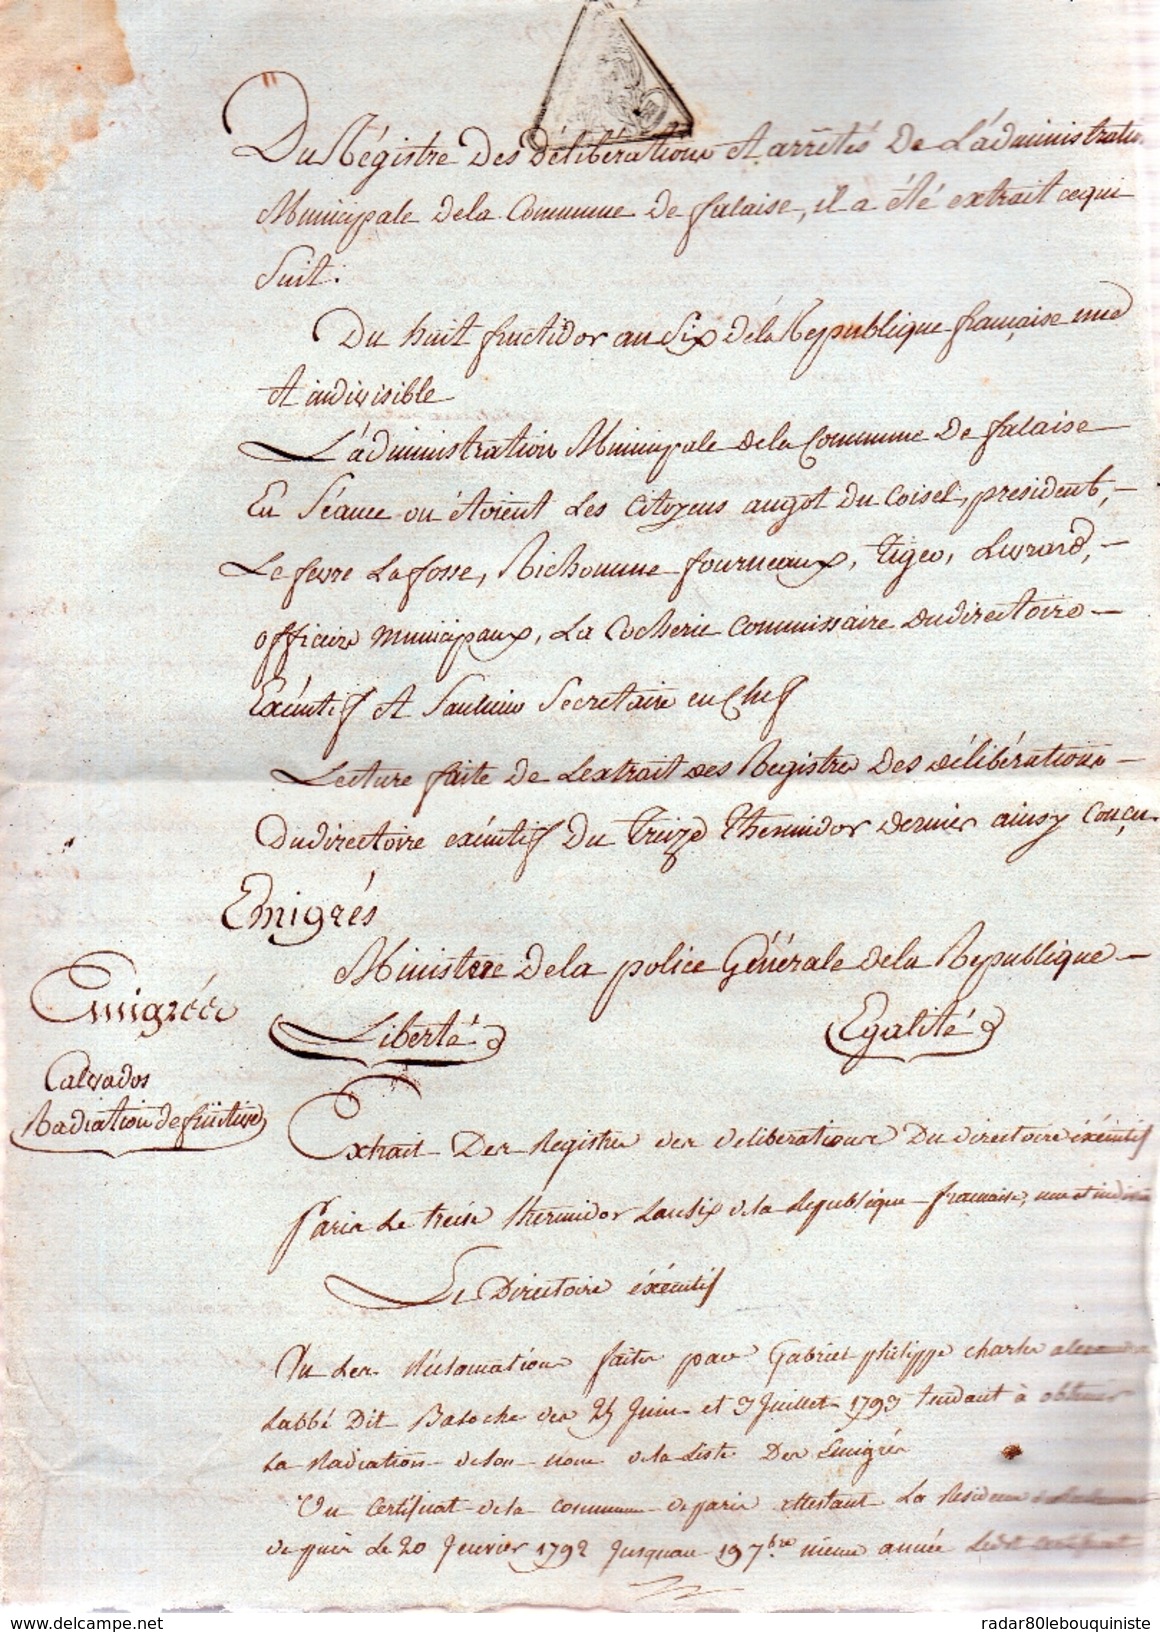 Du Régistre Des Délibérations et arrêtés De L'administration
Municipale dela Commune de falaise, il a été extrait cequi
Suit:
Du huit fructidor an Six déla Republique française une
et indivisible
L'administration Municipale dela Commune De falaise
En Séance où étoient Les Citoyens angot Du Coisel, president,
Le fevre Lafosse, Richomme fourneaux, Livrard,
officiers municipaux, La Cocherie Commissaire dudirectoire
Exécutif et Secretaire en Chef
Lecture faite de Lextrait des Registres Des délibérations
Dudirectoire exécutif Du Treize Thermidor dernier ainsy Conçu.
Emigrés
Ministere Dela police Générale dela Republique
Emigrés
Liberté
Egalité
Calvados
Radiation definitive
Extrait Des Registres des deliberations Du directoire éxécutif
Paris Le treise thermidor Lansix dela Republique francaise, une et indivisi
Le Directoire éxécutif
Vu Les Réclamations faites par Gabriel philippe charles
Labbé Dit Basoche des 25 Juin et 3 Juillet 1793 tendant à obtenir
La Radiation deson nom dela Liste Des Emigrés
Vu certificat dela commune de paris attestant La Residence
depuis Le 20 Jenvier 1792 Jusquau 19 7bre meme année
CultureandCollectibles.com
radar80lebouquiniste